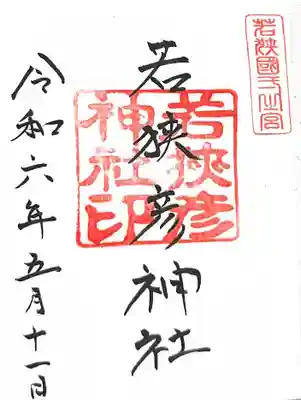 若狭國一之宮
若狭彦神社
若狭彦
神社印
令和六年五月十一日